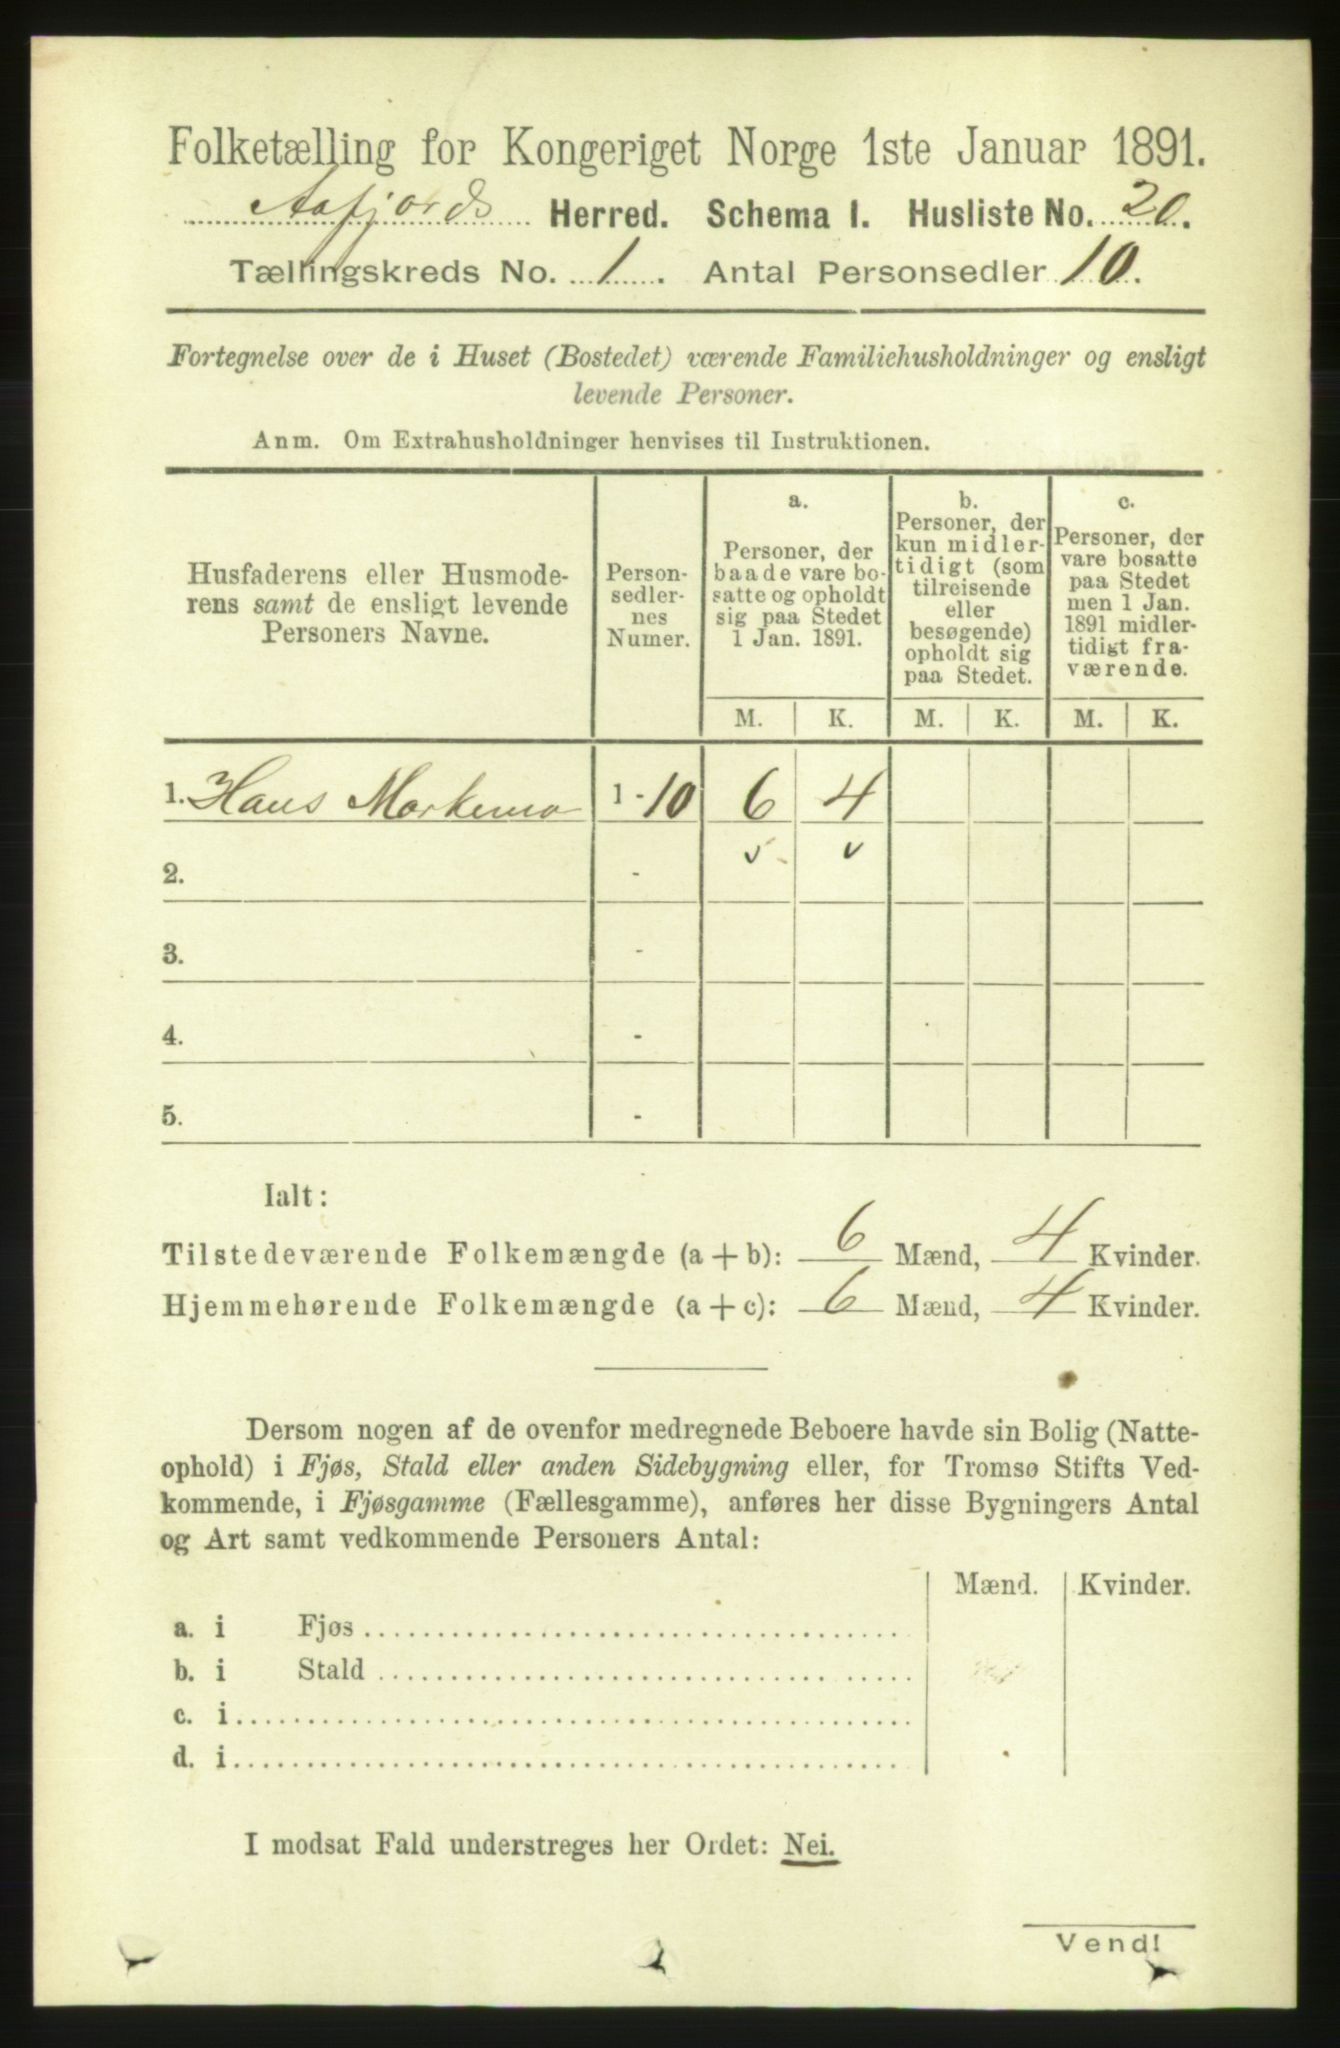 Folketælling for Kongeriget Norge 1ste Januar 1891.
Aafjords Herred. Schema I. Husliste No. 20.
Tællingskreds No. 1. Antal Personsedler 10.
Fortegnelse over de i Huset (Bostedet) værende Familiehusholdninger og ensligt
levende Personer.
Anm. Om Extrahusholdninger henvises til Instruktionen.
Husfaderens eller Husmode-
rens samt de ensligt levende
Personers Navne.
Person-
sedler-
nes
Numer.
a.
Personer, der
baade vare bo-
satte og opholdt
sig paa Stedet
1 Jan. 1891.
b.
Personer, der
kun midler-
tidigt (som
tilreisende
eller
besøgende)
opholdt sig
paa Stedet.
c.
Personer, der
vare bosatte
paa Stedet
men 1 Jan.
1891 midler-
tidigt fra-
værende.
M. K. M. K. M. K.
1. Hans Markemo 1 - 10 6 4
2. -
3. -
4. -
5. -
Ialt:
Tilstedeværende Folkemængde (a + b): 6 Mænd, 4 Kvinder.
Hjemmehørende Folkemængde (a + c): 6 Mænd, 4 Kvinder.
Dersom nogen af de ovenfor medregnede Beboere havde sin Bolig (Natte-
ophold) i Fjøs, Stald eller anden Sidebygning eller, for Tromsø Stifts Ved-
kommende, i Fjøsgamme (Fællesgamme), anføres her disse Bygningers Antal
og Art samt vedkommende Personers Antal:
Mænd. Kvinder.
a. i Fjøs
b. i Stald
c. i
d. i
I modsat Fald understreges her Ordet: Nei.
Vend!